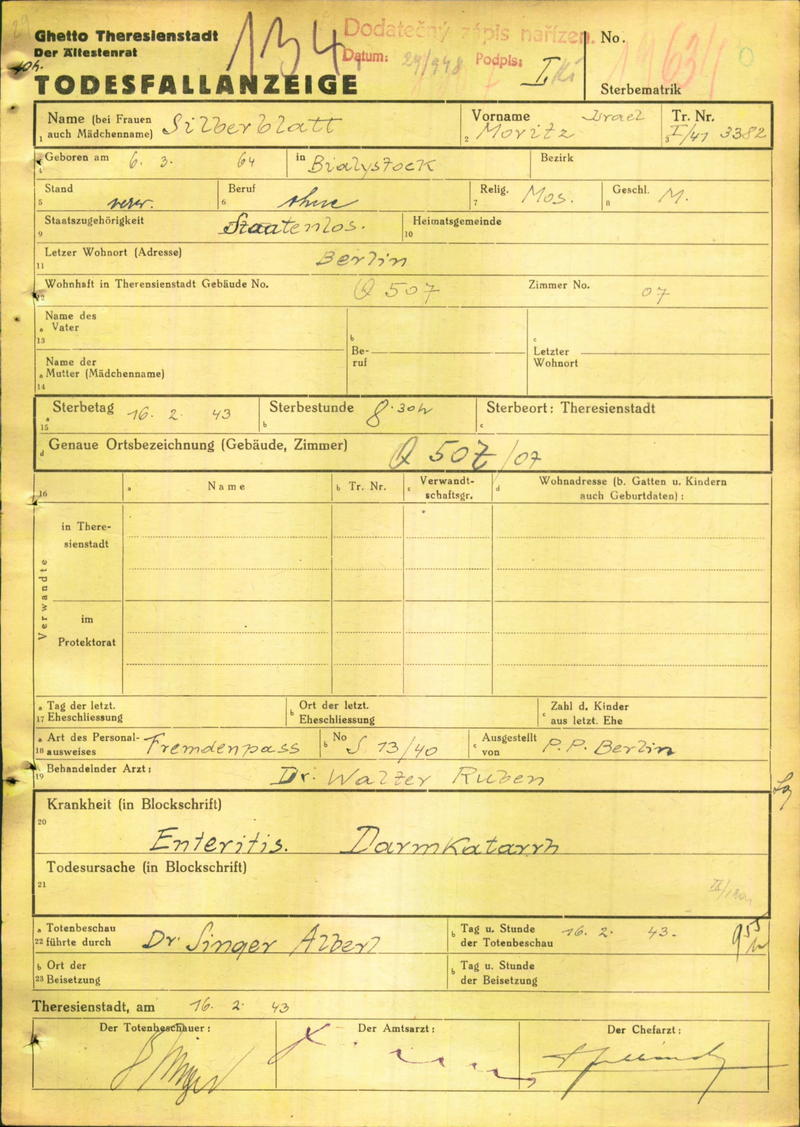 Ghetto Theresienstadt
Der Ältestenrat
TODESFALLANZEIGE
134
Dodatečný zápis nařízen.
Datum: Podpis:
No.
Sterbematrik
1 Name (bei Frauen auch Mädchenname) Silberblatt
2 Vorname Moritz Israel
3 Tr. Nr. I/41 3382
Geboren am 6. 3. 64 in Bialystock Bezirk
5 Stand verw. 6 Beruf ohne 7 Relig. Mos. 8 Geschl. M.
9 Staatszugehörigkeit Staatenlos. 10 Heimatsgemeinde
11 Letzer Wohnort (Adresse) Berlin
12 Wohnhaft in Therensienstadt Gebäude No. Q 507 Zimmer No. 07
13 a Name des Vater
b Beruf
c Letzter Wohnort
14 a Name der Mutter (Mädchenname)
15 a Sterbetag 16. 2. 43 b Sterbestunde 8.30h c Sterbeort: Theresienstadt
d Genaue Ortsbezeichnung (Gebäude, Zimmer) Q 507/07
16 a Name b Tr. Nr. c Verwandtschaftsgr. d Wohnadresse (b. Gatten u. Kindern auch Geburtdaten):
Verwandte
in Theresienstadt
im Protektorat
17 a Tag der letzt. Eheschliessung b Ort der letzt. Eheschliessung c Zahl d. Kinder aus letzt. Ehe
18 a Art des Personalausweises Fremdenpass b No S 13/40 c Ausgestellt von P.P. Berlin
19 Behandelnder Arzt: Dr. Walter Ruben
20 Krankheit (in Blockschrift)
Enteritis. Darmkatarrh
21 Todesursache (in Blockschrift)
22 a Totenbeschau führte durch Dr. Singer Albert b Tag u. Stunde der Totenbeschau 16. 2. 43. 9 55 h
23 b Ort der Beisetzung b Tag u. Stunde der Beisetzung
Theresienstadt, am 16. 2. 43
Der Totenbeschauer: Der Amtsarzt: Der Chefarzt: